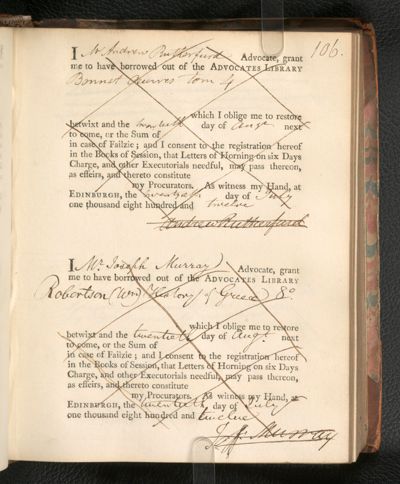 106.
I Mr Andrew Rutherfurd Advocate, grant
me to have borrowed out of the ADVOCATES LIBRARY
Bonnet Œuvres tom 4
which I oblige me to restore
betwixt and the twentieth day of Augt. next
to come, or the Sum of
in case of Failzie; and I consent to the registration hereof
in the Books of Session, that Letters of Horning on six Days
Charge, and other Executorials needful, may pass thereon,
as effeirs, and thereto constitute
my Procurators. As witness my Hand, at
EDINBURGH, the twentieth day of July
one thousand eight hundred and twelve
Andrew Rutherfurd
I Mr. Joseph Murray Advocate, grant
me to have borrowed out of the ADVOCATES LIBRARY
Robertson (Wm) History of Greece 8o
which I oblige me to restore
betwixt and the twentieth day of Augt. next
to come, or the Sum of
in case of Failzie; and I consent to the registration hereof
in the Books of Session, that Letters of Horning on six Days
Charge, and other Executorials needful, may pass thereon,
as effeirs, and thereto constitute
my Procurators. As witness my Hand, at
EDINBURGH, the twentieth day of July
one thousand eight hundred and twelve
Murray